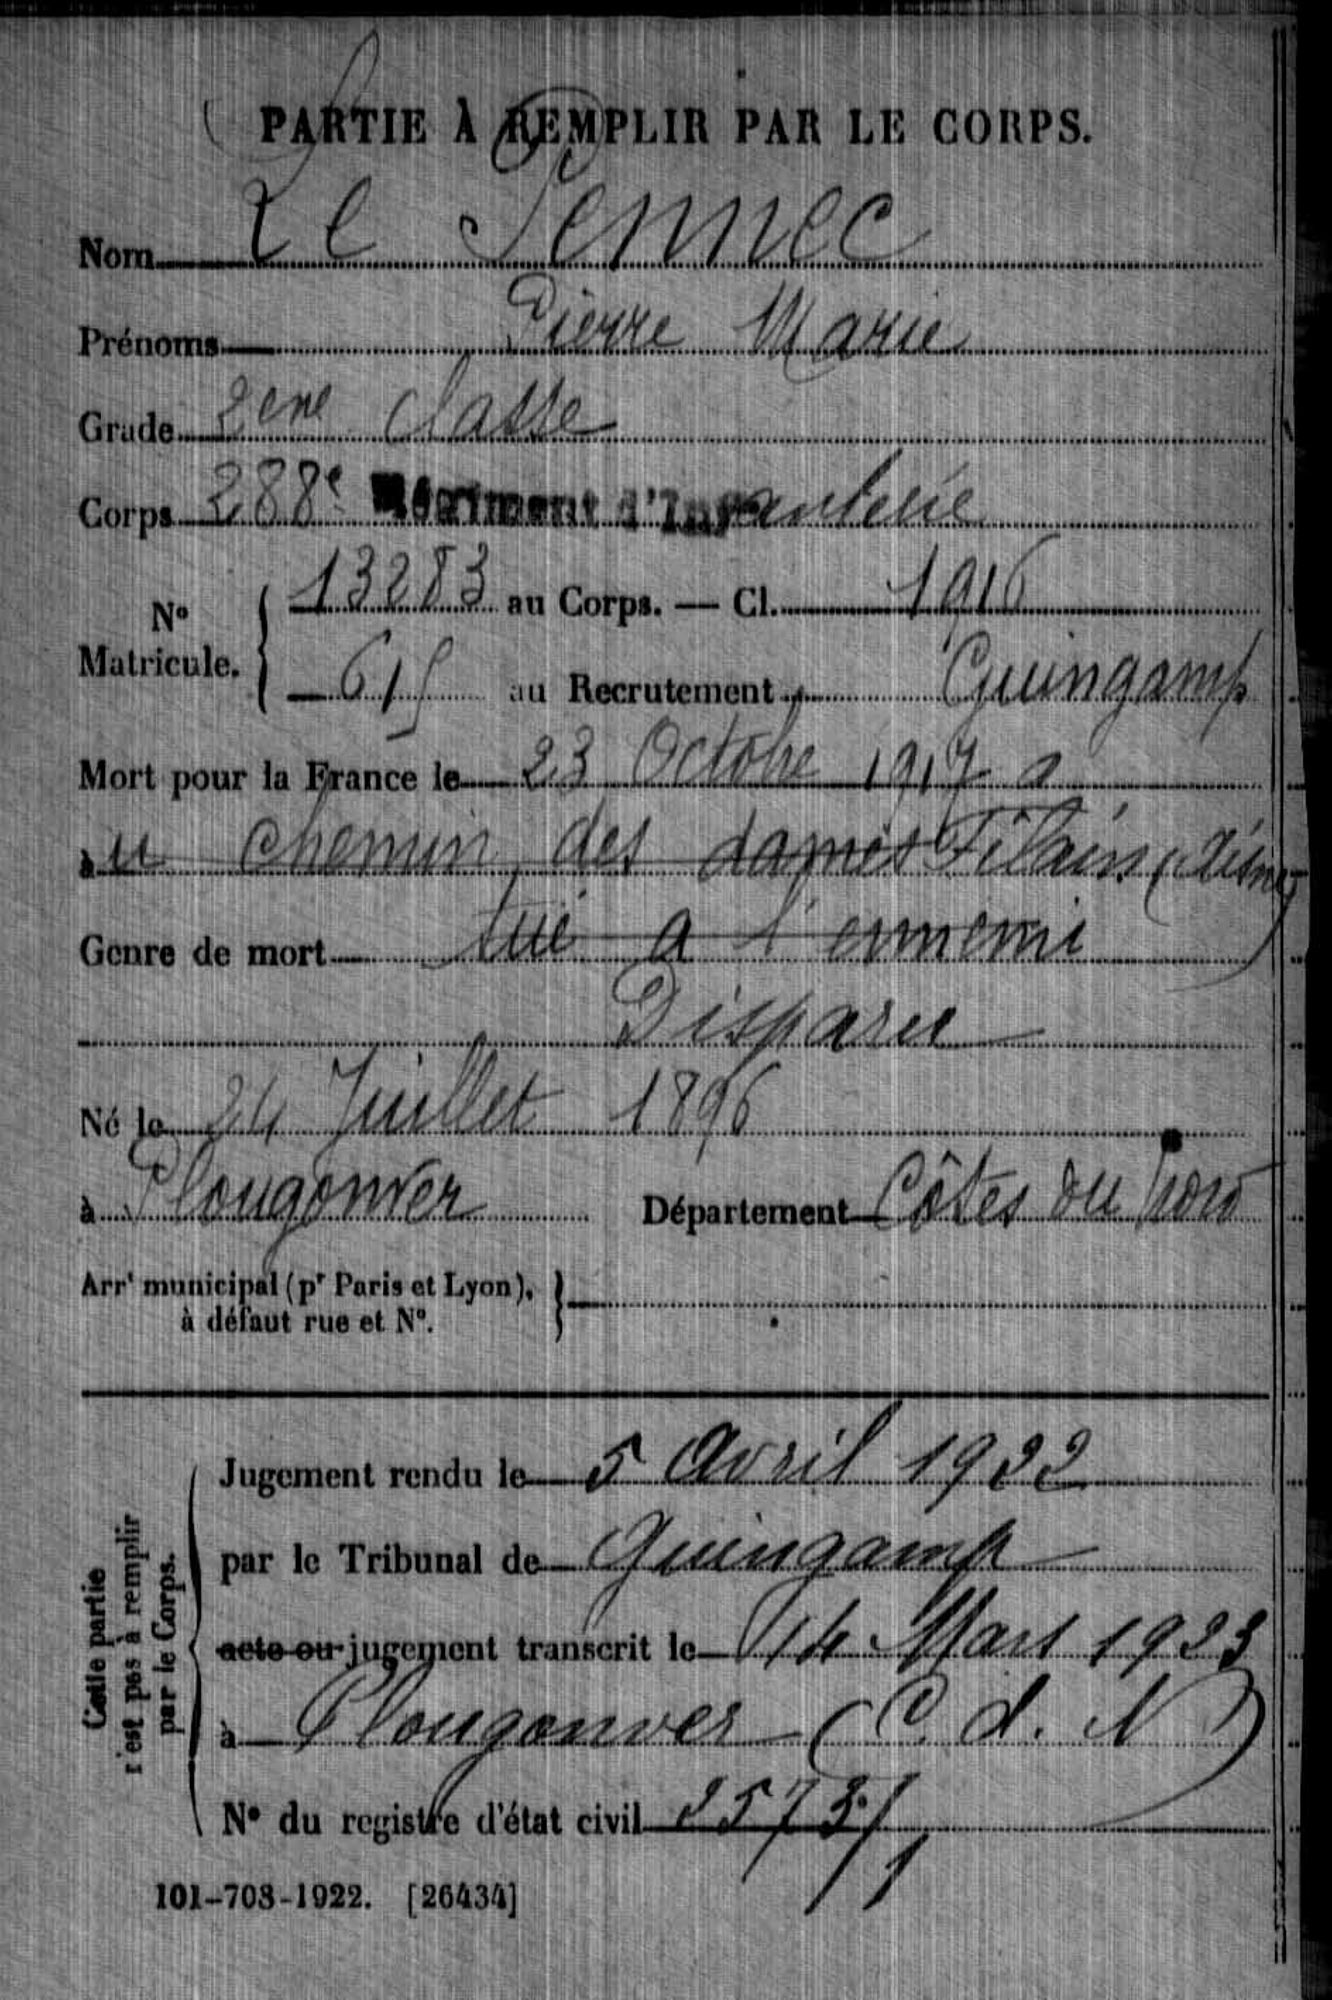 PARTIE À REMPLIR PAR LE CORPS.
Nom Le Pennec
Prénoms Pierre Marie
Grade 2ene classe
Corps 288e Régiment d'Infanterie
N° Matricule. { 13283 au Corps. — Cl. 1916
615 au Recrutement Guingamp
Mort pour la France le 23 Octobre 1917 a
à u chemin des dames Filain (Aisne)
Genre de mort tué a l'ennemi
Disparu
Né le 24 Juillet 1896
à Plougonver Département Côtes du Nord
Arrt municipal (pr Paris et Lyon),
à défaut rue et N°.
Cette partie
n'est pas à remplir
par le Corps.
Jugement rendu le 5 Avril 1922
par le Tribunal de Guingamp
acte ou jugement transcrit le 14 Mars 1923
à Plougonver (C. d. N)
N° du registre d'état civil 2573/1
101-708-1922. [26434]